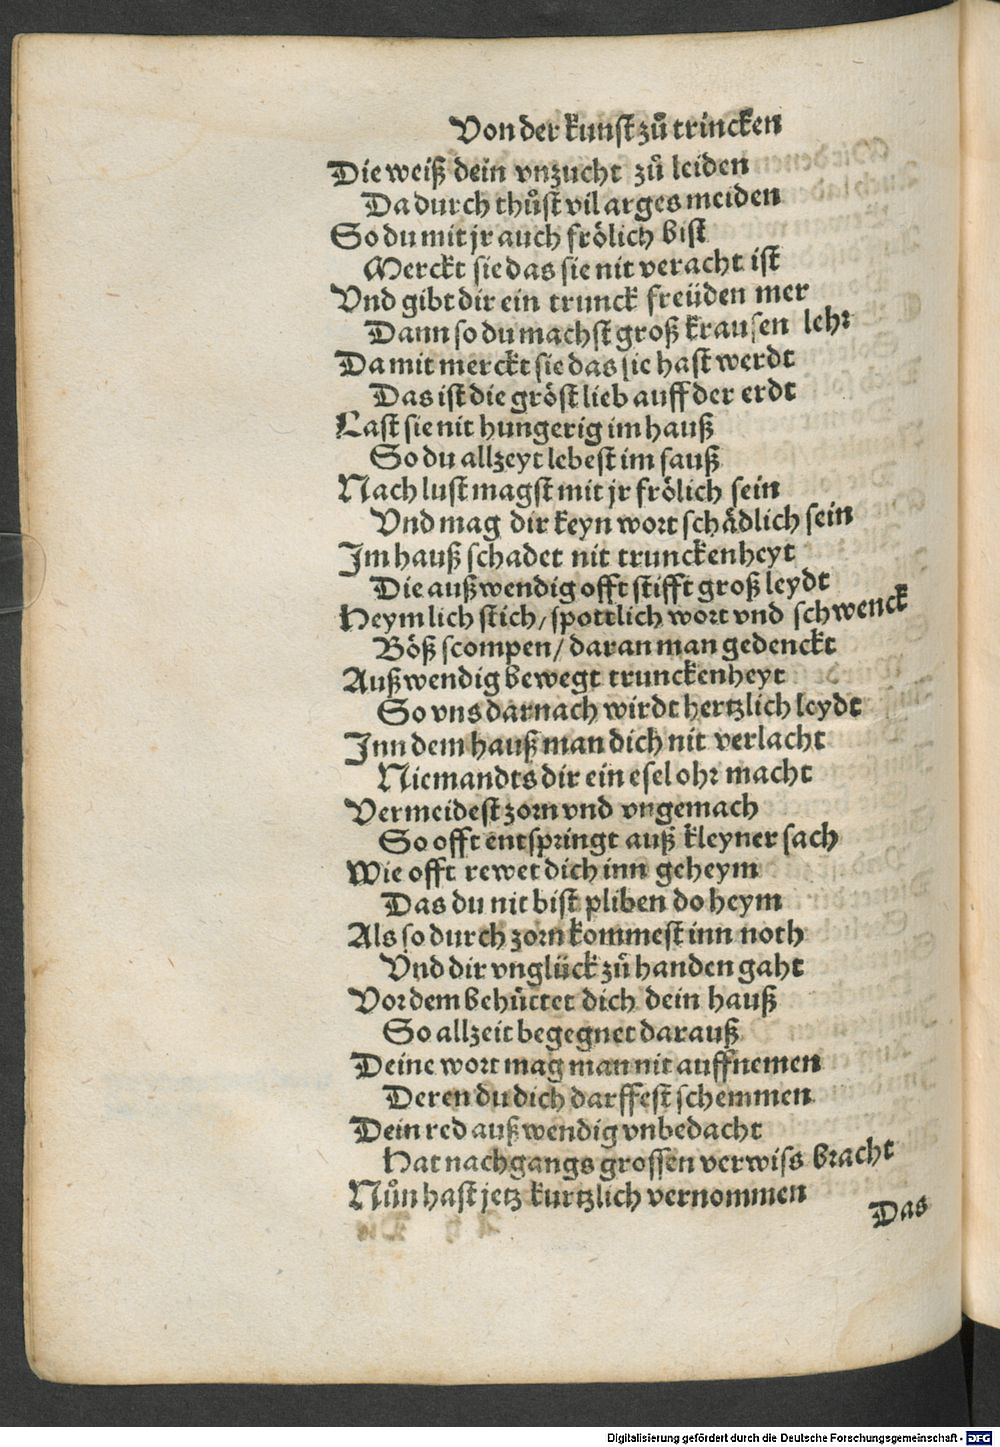 Von der kunst zů trincken
Die weiß dein vnzucht zů leiden
Da durch thůst vil arges meiden
So du mit jr auch frölich bist
Merckt sie das sie nit veracht ist
Vnd gibt dir ein trunck freüden mer
Dann so du machst groß krausen lehr
Damit merckt sie das sie hast werdt
Das ist die gröst lieb auff der erdt
Last sie nit hungerig im hauß
So du allzeyt lebest im sauß
Nach lust magst mit jr frölich sein
Vnd mag dir keyn wort schädlich sein
Im hauß schadet nit trunckenheyt
Die außwendig offt stifft groß leydt
Heymlich stich/ spottlich wort vnd schwenck
Böß scompen/ daran man gedenckt
Außwendig bewegt trunckenheyt
So vns darnach wirdt hertzlich leydt
Inn dem hauß man dich nit verlacht
Niemandts dir ein esel ohr macht
Vermeidest zorn vnd vngemach
So offt entspringt auß kleyner sach
Wie offt rewet dich inn geheym
Das du nit bist pliben do heym
Als so durch zorn kommest inn noth
Vnd dir vnglück zů handen gaht
Vor dem behůttet dich dein hauß
So allzeit begegnet darauß
Deine wort mag man nit auffnemen
Deren du dich darffest schemmen
Dein red außwendig vnbedacht
Hat nachgangs grossen verwiss bracht
Nůn hast jetz kurtzlich vernommen
Das
Digitalisierung gefördert durch die Deutsche Forschungsgemeinschaft - DFG